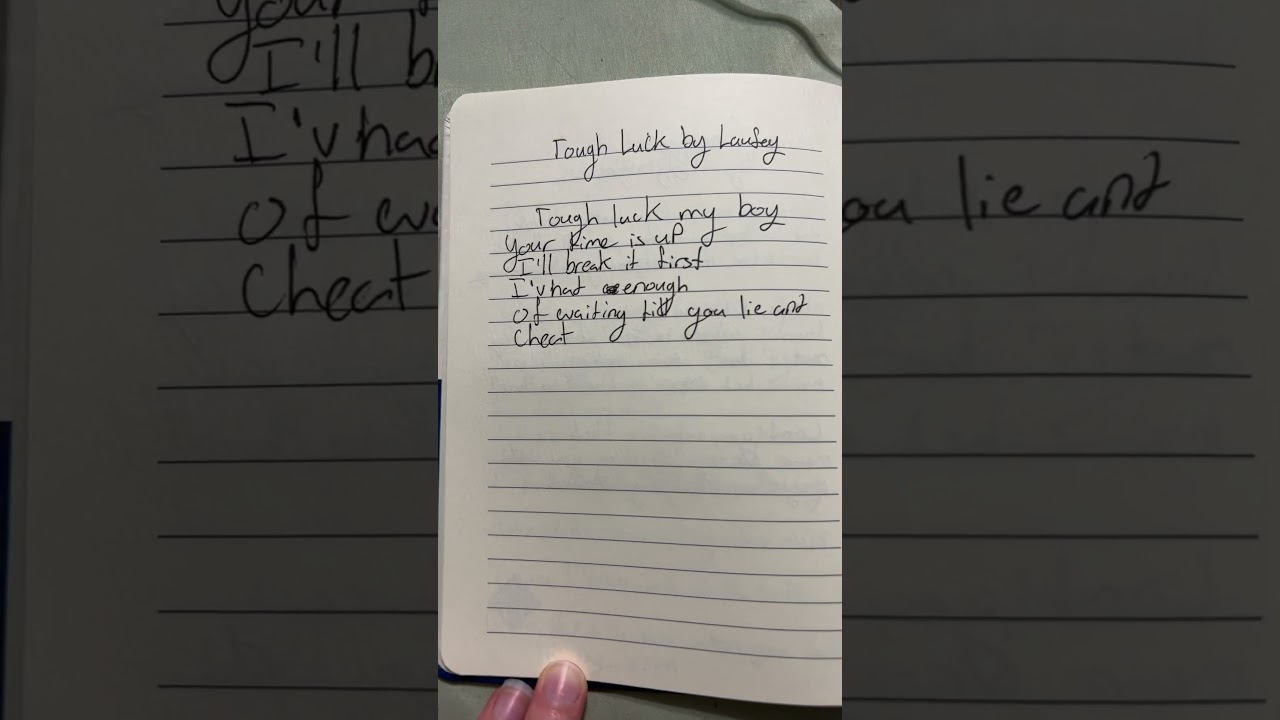 Tough Luck by Laufey
Tough luck my boy
Your time is up
I'll break it first
I'v had enough
Of waiting till you lie and
Cheat